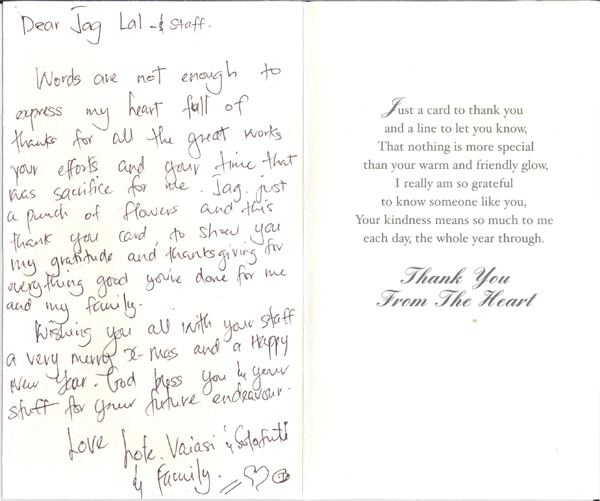 Dear Jag Lal & Staff.
Words are not enough to
express my heart full of
thanks for all the great works
your efforts and your time that
was sacrifice for me. Jag. just
a punch of flowers and this
thank you card, to show you
my gratitude and thanksgiving for
everything good you've done for me
and my family.
Wishing you all with your staff
a very merry x-mas and a Happy
New Year. God bless you & your
stuff for your future endeavour.
Love Lote. Vaiasi &
& Family.
Just a card to thank you
and a line to let you know,
That nothing is more special
than your warm and friendly glow,
I really am so grateful
to know someone like you,
Your kindness means so much to me
each day, the whole year through.
Thank You
From The Heart